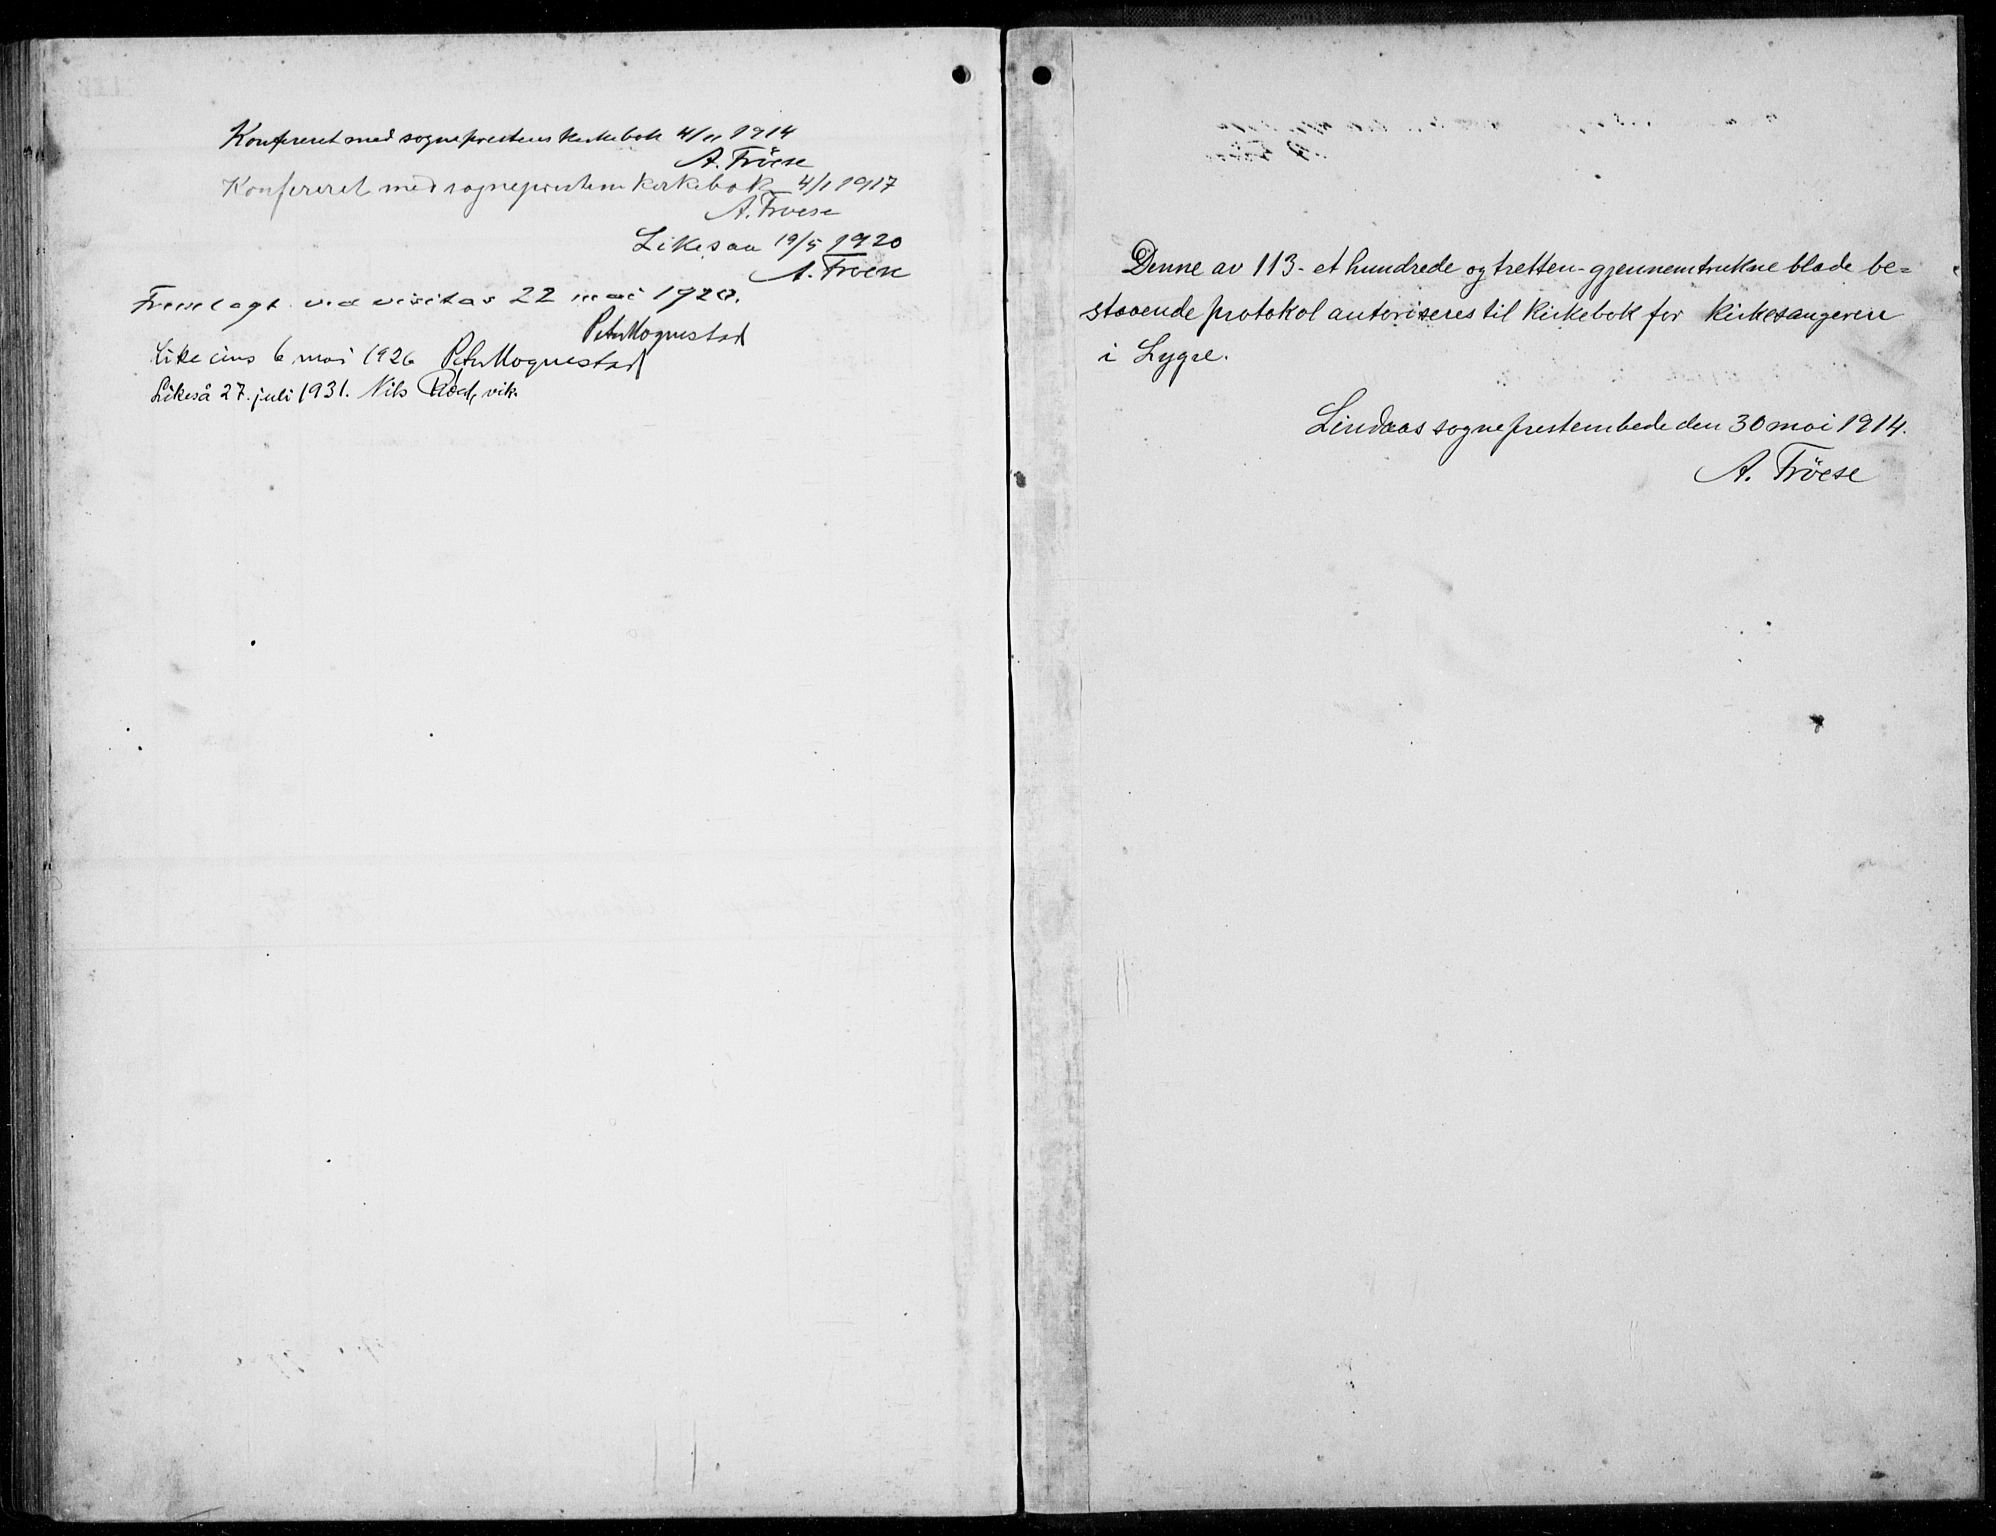 Konfereret med sogneprestens kirkebok 4/11 1914
A. Fröese
Konfereret med sogneprestens kirkebok 4/1 1917
A. Froese
Likesaa 19/5 1920
A. Froese
Fremlagt ved visitas 22 mai 1920.
Peter Hognestad
Likeeins 6 mai 1926 Peter Hognestad
Likeså 27. juli 1931. Nils
Denne av 113 - et hundrede og tretten - gjennemtrukne blade be=
staaende protokol autoriseres til kirkebok for kirkesangeren
i Lygre.
Lindaas sogneprestembede den 30 mai 1914.
A. Fröese